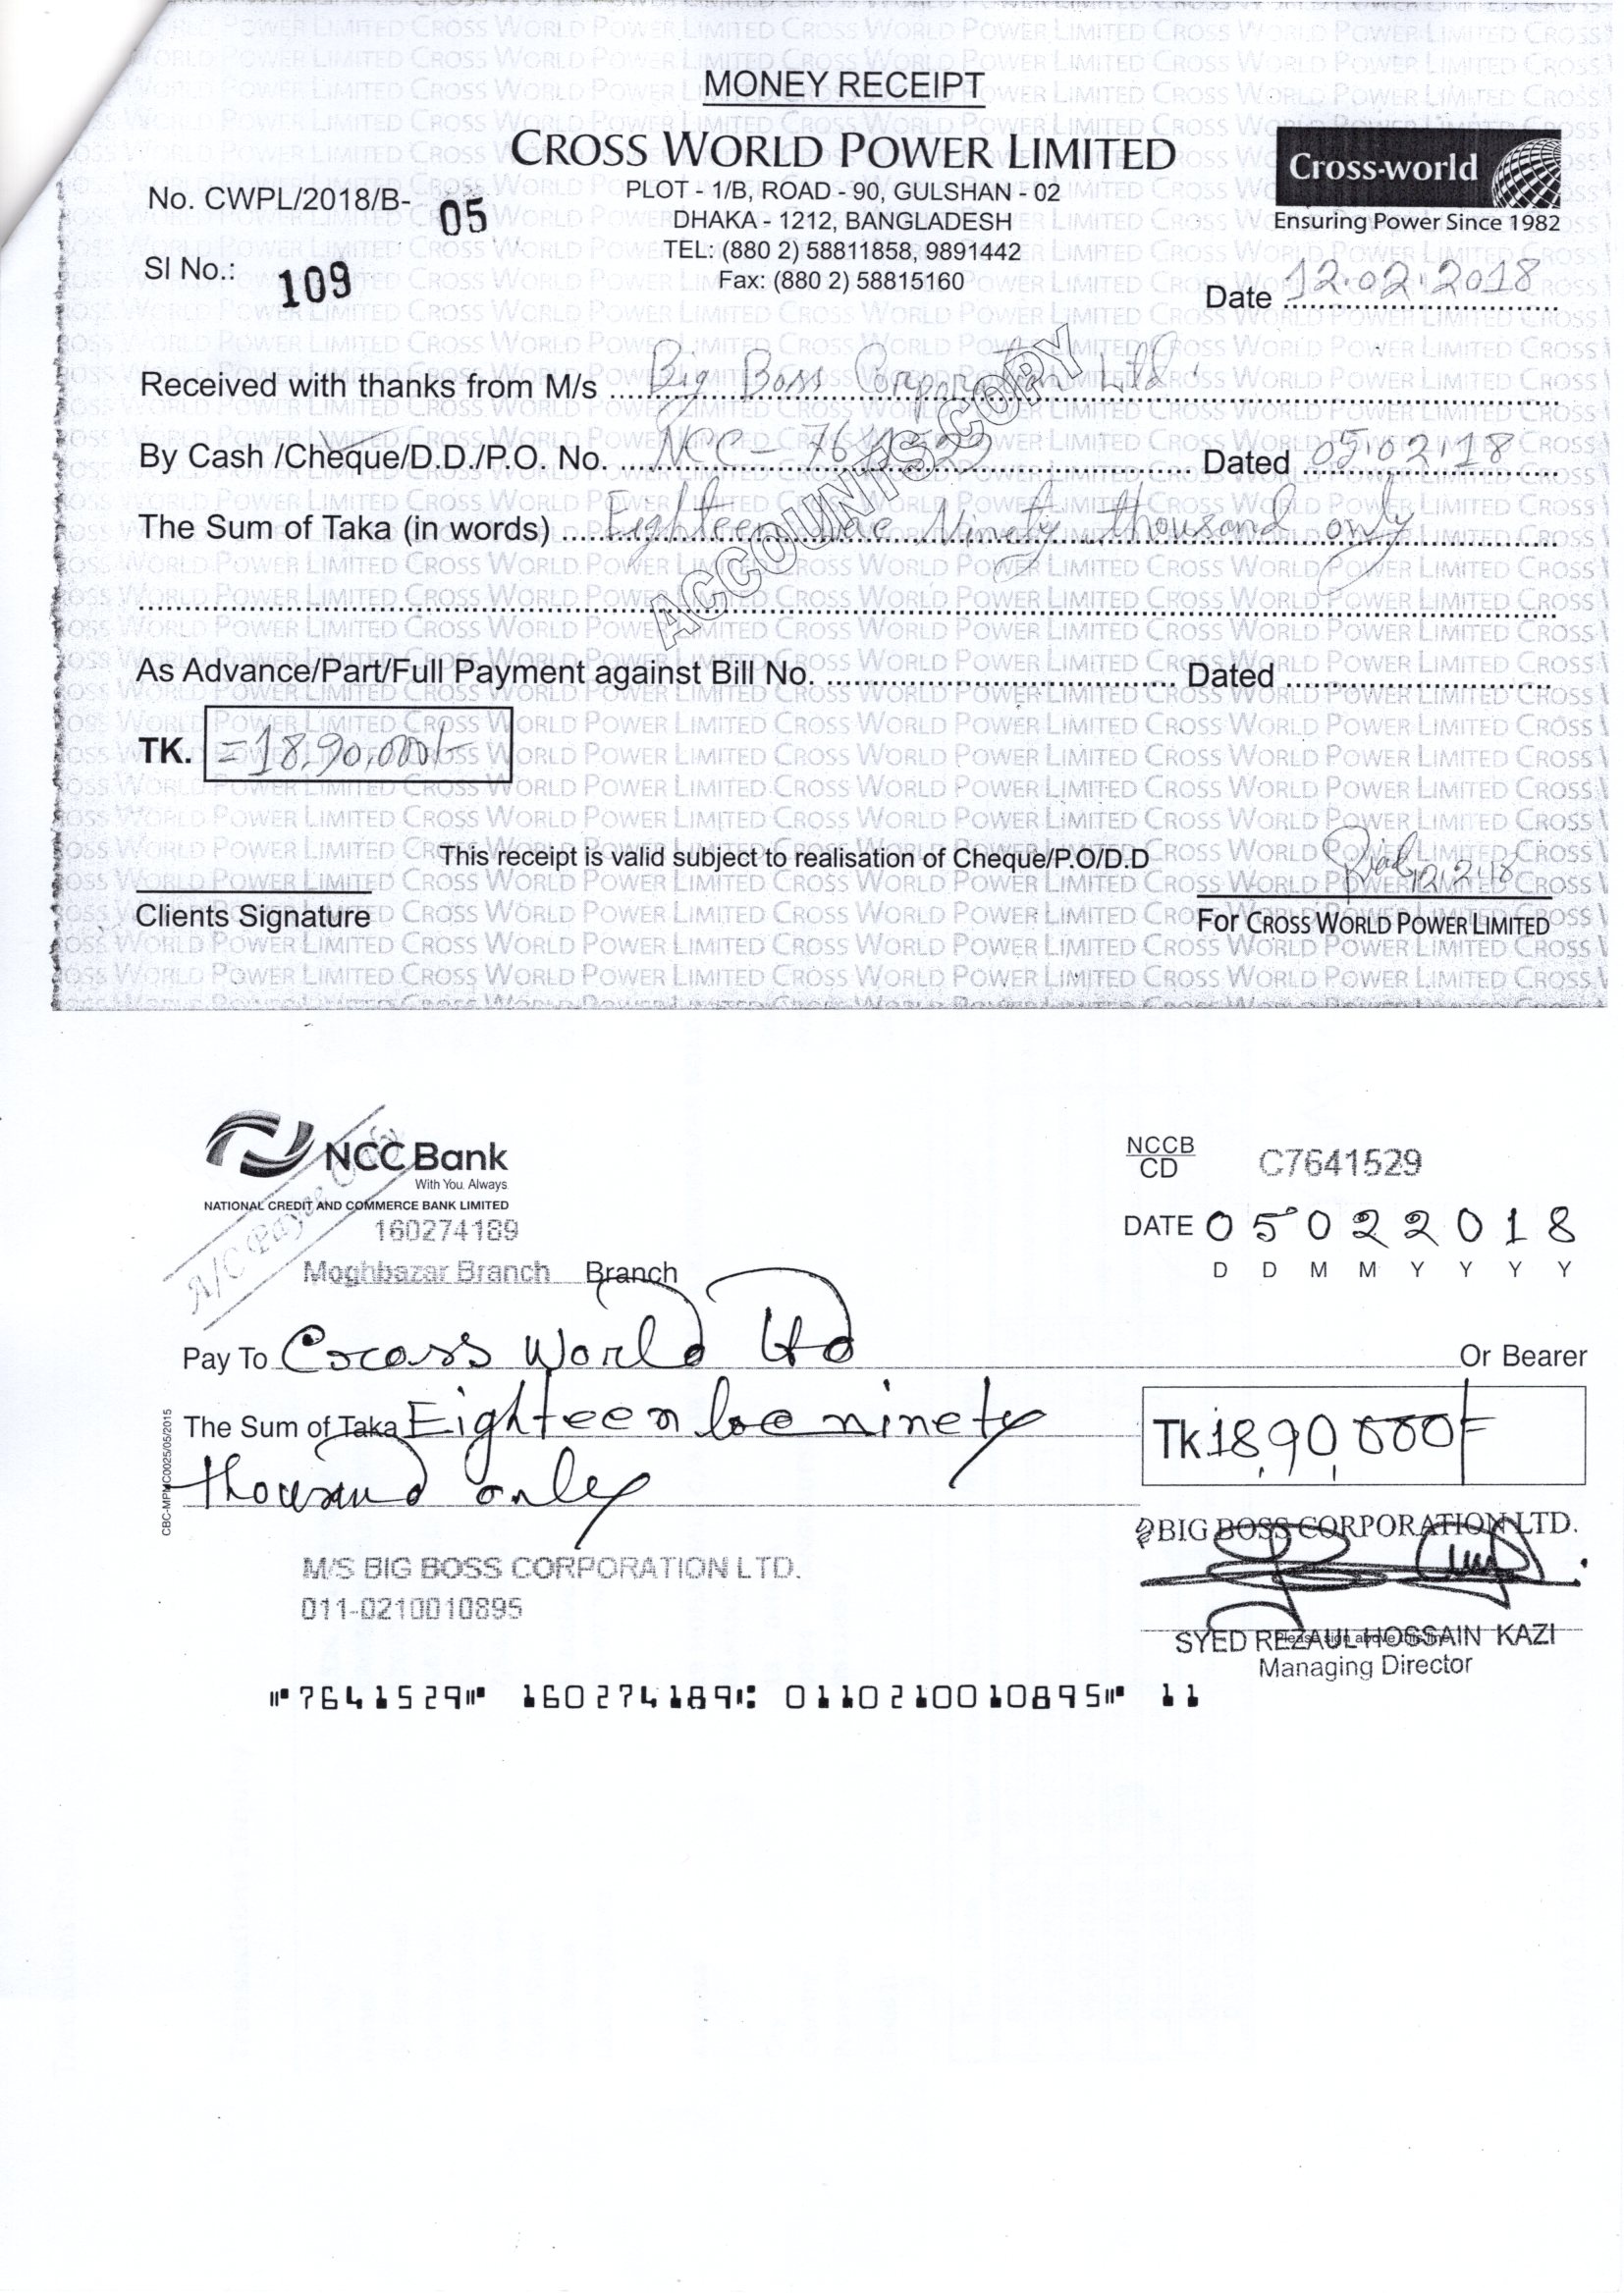 MONEY RECEIPT
CROSS WORLD POWER LIMITED
Cross-world
Ensuring Power Since 1982
No. CWPL/2018/B- 05
PLOT - 1/B, ROAD - 90, GULSHAN - 02
DHAKA - 1212, BANGLADESH
TEL: (880 2) 58811858, 9891442
Fax: (880 2) 58815160
Sl No.: 109
Date 12.02.2018
Received with thanks from M/s Big Boss Corporation Ltd.
By Cash /Cheque/D.D./P.O. No. NCC - Dated 05.02.18
The Sum of Taka (in words) Eighteen Lac Ninety thousand only
ACCOUNTS COPY
As Advance/Part/Full Payment against Bill No. Dated
TK. =18,90,000/-
This receipt is valid subject to realisation of Cheque/P.O/D.D
12.2.18
Clients Signature
For CROSS WORLD POWER LIMITED
NCC Bank
With You. Always
NATIONAL CREDIT AND COMMERCE BANK LIMITED
A/C Payee Only
160274189
Moghbazar Branch Branch
NCCB
CD
C7641529
DATE 0 5 0 2 2 0 1 8
D D M M Y Y Y Y
Pay To Cross World Ltd Or Bearer
The Sum of Taka Eighteen lac ninety
thousand only
Tk 18,90,000/-
CBC-MPMC0025/05/2015
BIG BOSS CORPORATION LTD.
M/S BIG BOSS CORPORATION LTD.
011-0210010895
Please sign above this line
SYED REZAUL HOSSAIN KAZI
Managing Director
⑈7641529⑈ 160274189⑆ 0110210010895⑈ 11